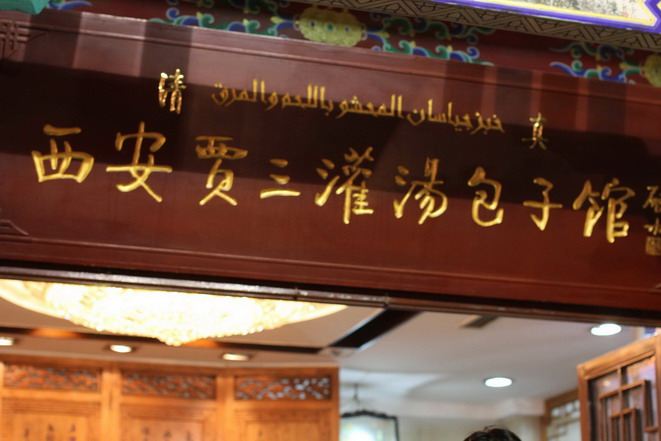 清 خبز جياسان المحشو باللحم والمرق 真
西安贾三灌汤包子馆